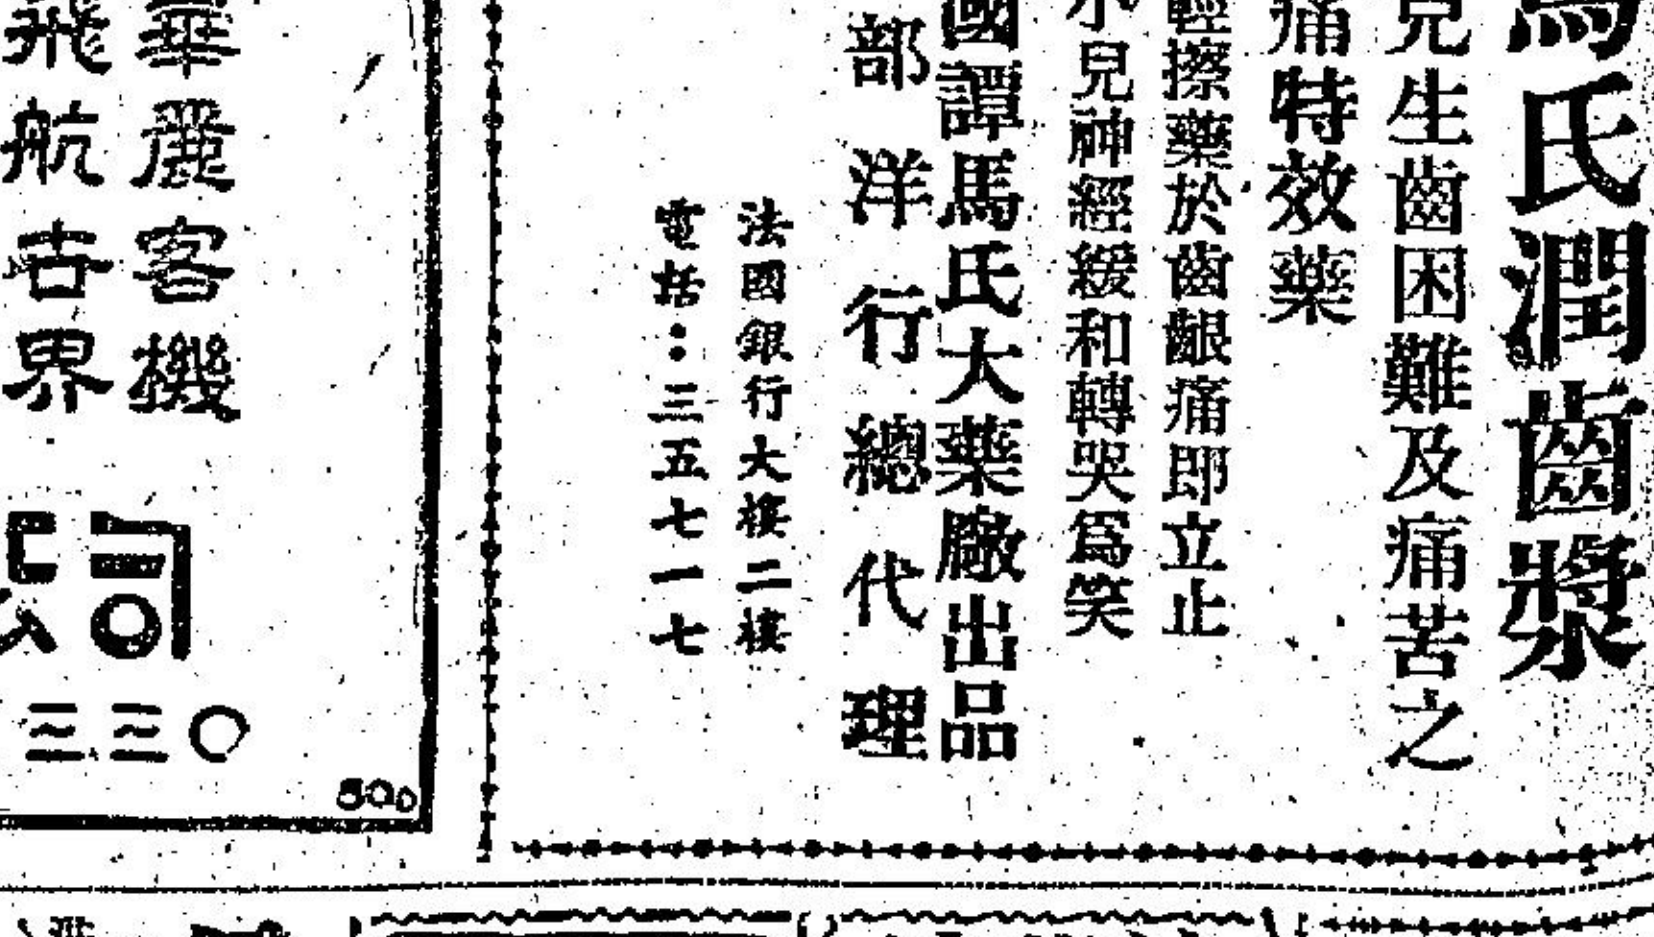 馬氏潤齒漿
兒生齒困難及痛苦之
痛特效藥
輕擦藥於齒齦痛即立止
小兒神經緩和轉哭爲笑
國譚馬氏大藥廠出品
部洋行總代理
法國銀行大樓二樓
電話：三五七一七
華麗客機
飛航世界
司
三三〇